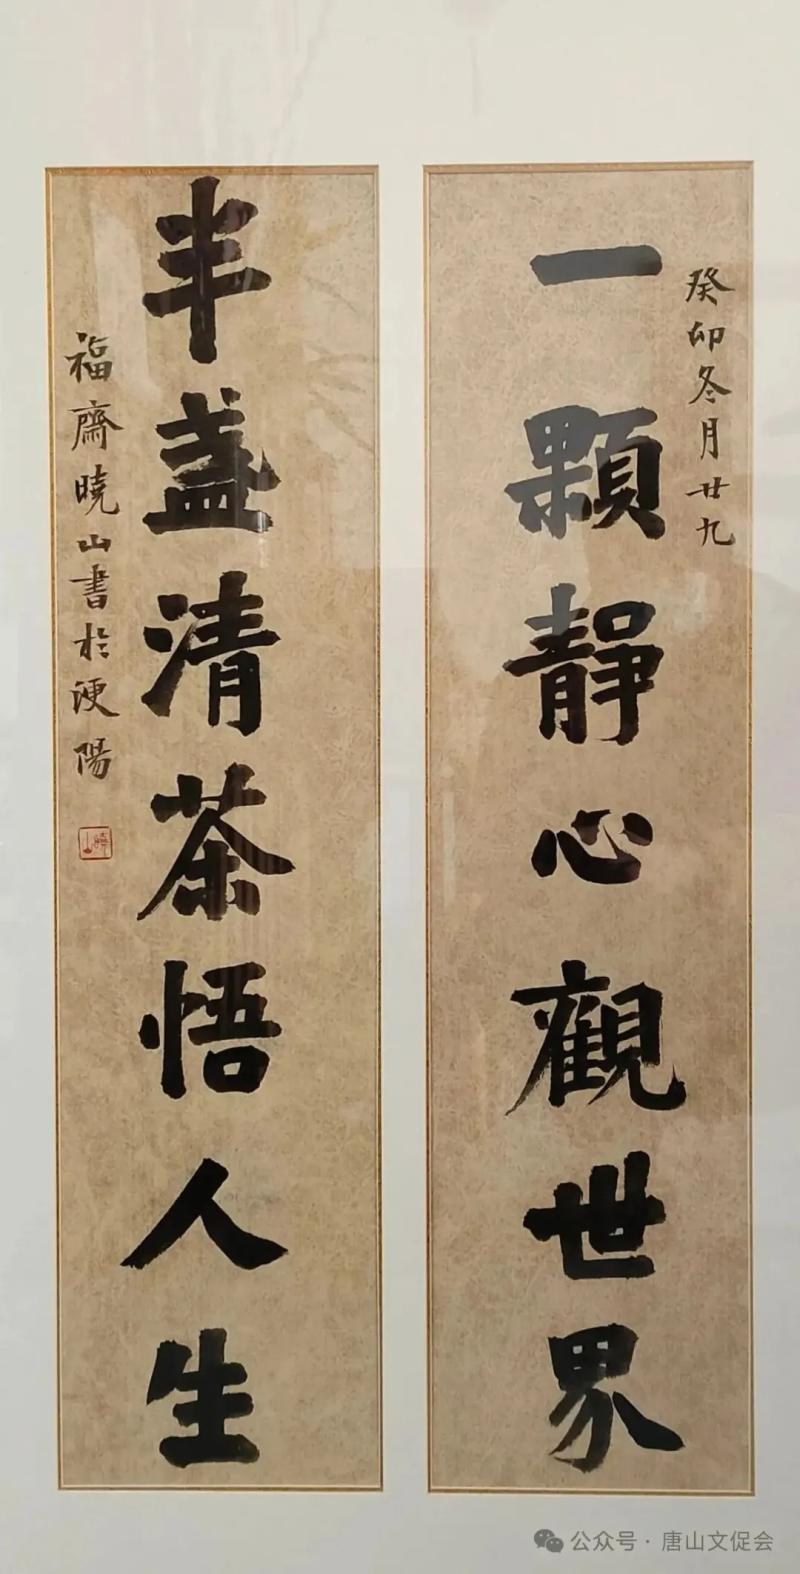 癸卯冬月廿九
一顆靜心觀世界
半盞清茶悟人生
福齋曉山書於浭陽
曉山
公众号 · 唐山文促会